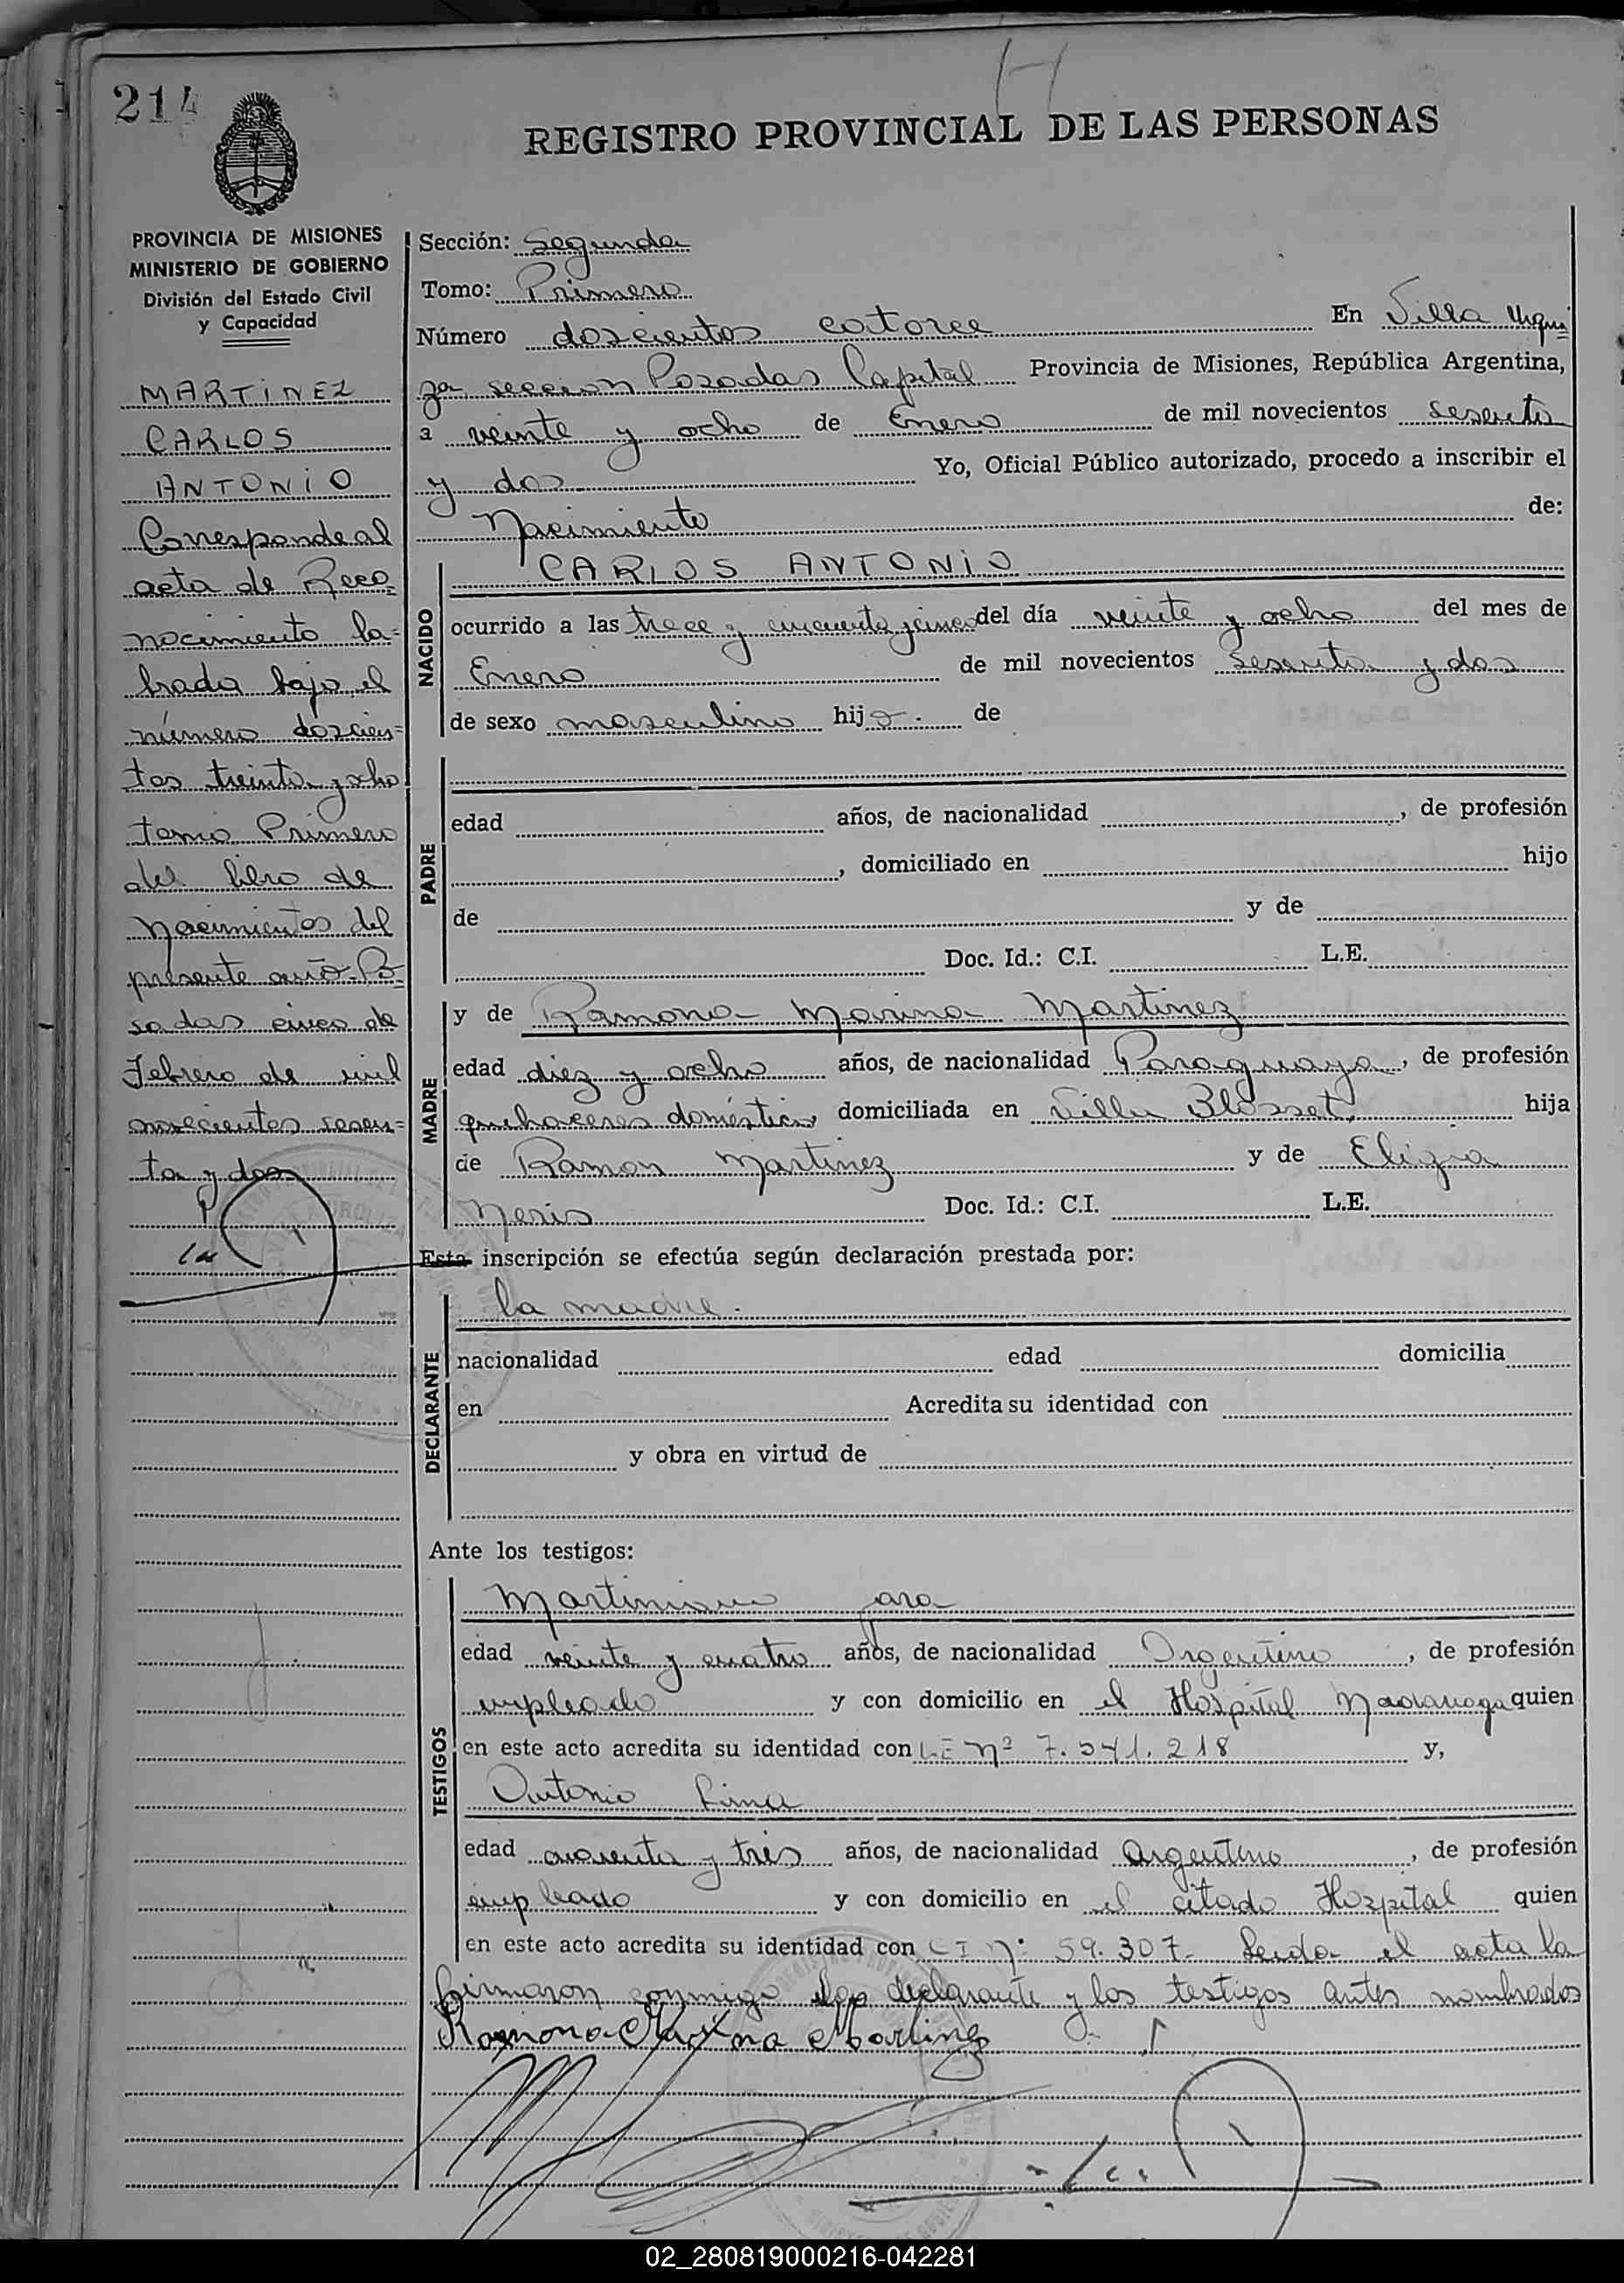 214
REGISTRO PROVINCIAL DE LAS PERSONAS
PROVINCIA DE MISIONES
MINISTERIO DE GOBIERNO
División del Estado Civil
y Capacidad
MARTINEZ
CARLOS
ANTONIO
Corresponde al
acta de Reco=
nocimiento la=
brada bajo el
número doscien=
tos treinta y ocho
tomo Primero
del libro de
Nacimientos del
presente año. Po=
sadas cinco de
Febrero de mil
novecientos sesen=
ta y dos
Sección: Segunda
Tomo: Primero
Número doscientos catorce En Villa Urqui
za seccion Posadas Capital Provincia de Misiones, República Argentina,
a veinte y ocho de Enero de mil novecientos sesenta
y dos Yo, Oficial Público autorizado, procedo a inscribir el
Nacimiento de:
NACIDO
CARLOS ANTONIO
ocurrido a las trece y cincuenta y cinco del día veinte y ocho del mes de
Enero de mil novecientos sesenta y dos
de sexo masculino hijo. de
PADRE
edad años, de nacionalidad , de profesión
, domiciliado en hijo
de y de
Doc. Id.: C.I. L.E.
MADRE
y de Ramona Marina Martinez
edad diez y ocho años, de nacionalidad Paraguaya, de profesión
quehaceres domésticos domiciliada en Villa Blosset, hija
de Ramon Martinez y de Eligia
Neris Doc. Id.: C.I. L.E.
Esta inscripción se efectúa según declaración prestada por:
DECLARANTE
la madre.
nacionalidad edad domicilia
en Acredita su identidad con
y obra en virtud de
Ante los testigos:
TESTIGOS
Martiniano Jara
edad veinte y cuatro años, de nacionalidad Argentino, de profesión
empleado y con domicilio en el Hospital Madariaga quien
en este acto acredita su identidad con LE Nº 7.541.218 y,
Antonio Lima
edad cuarenta y tres años, de nacionalidad Argentino, de profesión
empleado y con domicilio en el citado Hospital quien
en este acto acredita su identidad con CI Nº 59.307- Leida el acta la
firmaron conmigo la declarante y los testigos antes nombrados
Ramona Marina Martinez
02_280819000216-042281